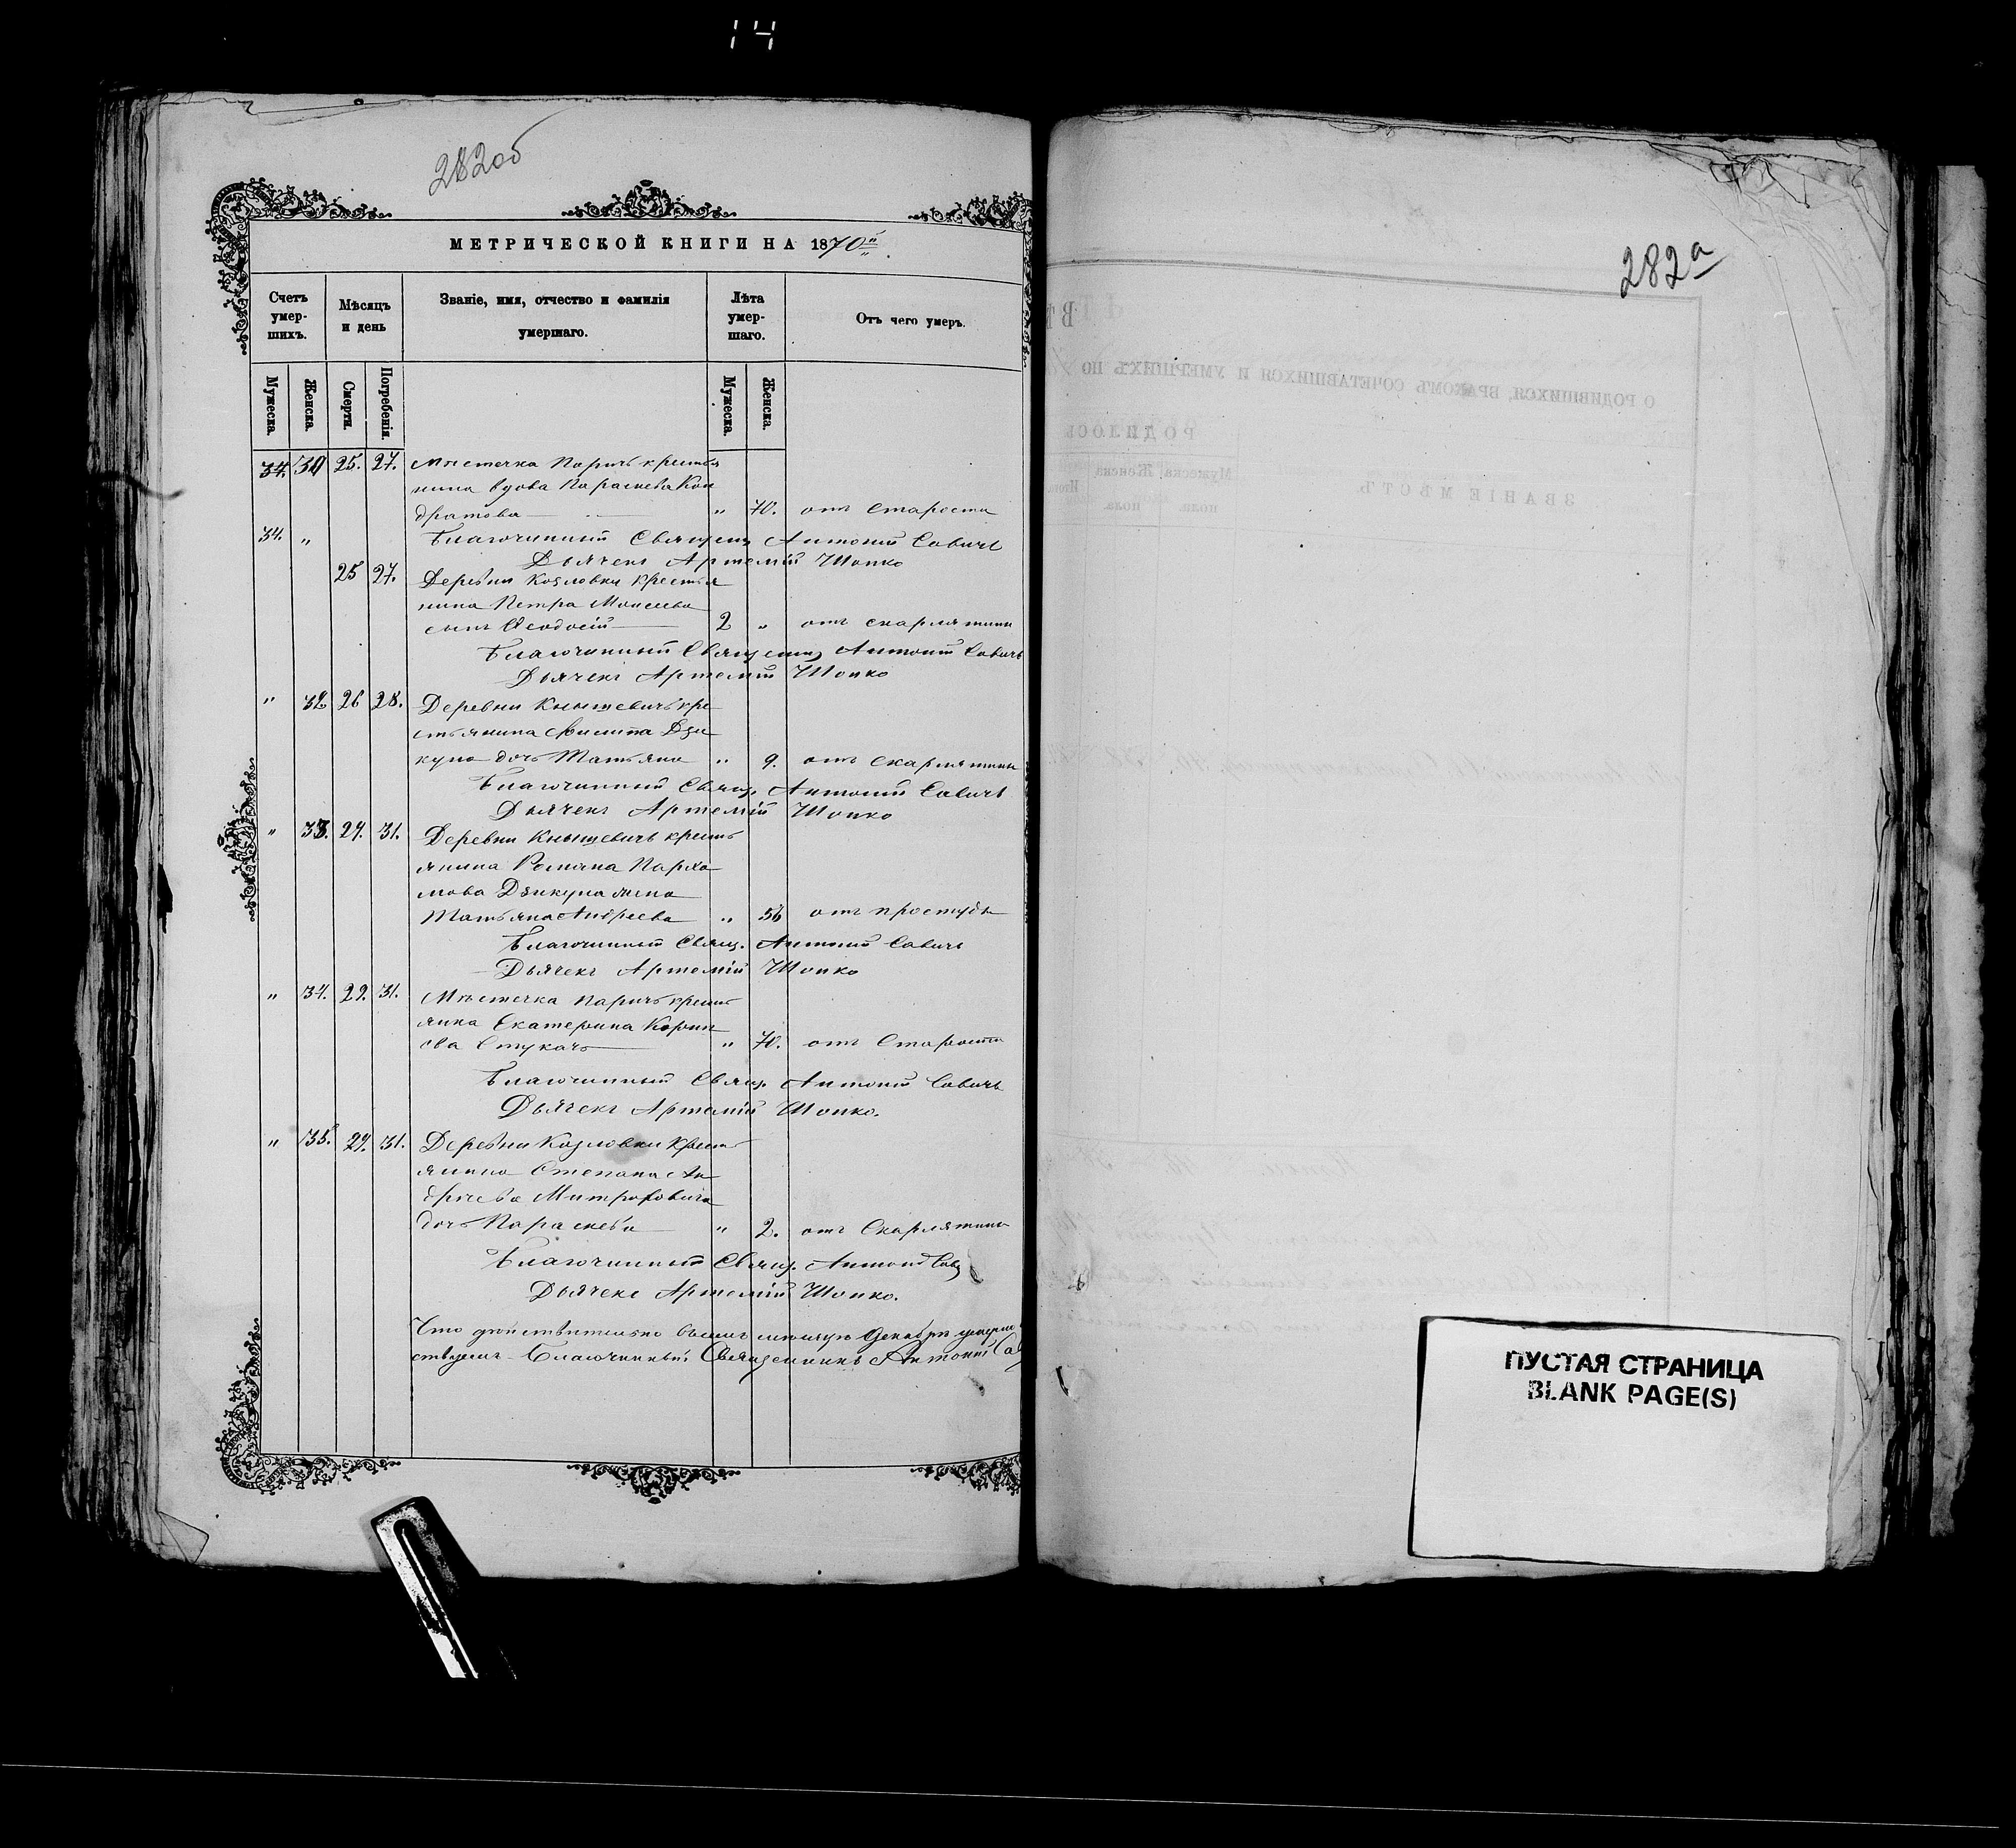 14
282об
МЕТРИЧЕСКОЙ КНИГИ НА 1870й
Счетъ умер-шихъ.
Мѣсяцъ и день
Званіе, имя, отчество и фамилія умершаго.
Лѣта умер-шаго.
Отъ чего умеръ.
Мужеска. Женска. Смерти. Погребенія. Мужеска. Женска.
25. 27. Мѣстечка Паричъ крестья
нина вдова Параскева Кон
дратова „ 70. отъ старости
Благочинный Священ Антоній Савичъ
34. „
Дьячекъ Артемій Шопко
25 27. Деревни Козловки крестья
нина Петра Моисеева
сынъ Ѳеодосій 2 „ отъ скарлятины
Благочинный Священ Антоній Савичъ
Дьячекъ Артемій Шопко
„ 32 26 28. Деревни Кнышевичъ кре
стьянина Филиппа Дзи
куна дочь Татьяна „ 9. отъ скарлятины
Благочинный Свящ. Антоній Савичъ
Дьячекъ Артемій Шопко
„ 33. 29. 31. Деревни Кнышевичъ кресть
янина Романа Пархо
мова Дзикуна жена
Татьяна Андреева „ 56 отъ простуды
Благочинный Свящ. Антоній Савичъ
Дьячекъ Артемій Шопко
„ 34. 29. 31. Мѣстечка Паричъ кресть
янка Екатерина
Стукачъ „ 70. отъ Старости
Благочинный Свящ. Антоній Савичъ
Дьячекъ Артемій Шопко.
„ 35. 29. 31. Деревни Козловки Кресть
янина Степана Ан
дреева Митрофовича
дочь Параскева „ 2. отъ Скарлятины
Благочинный Свящ. Антоній
Дьячекъ Артемій Шопко.
Что дѣйствительно Декабрѣ
Благочинный Священникъ Антоній
282а
О РОДИВШИХСЯ, БРАКОМЪ СОЧЕТАВШИХСЯ И УМЕРШИХЪ ПО
РОДИЛОСЬ
ЗВАНІЕ МѢСТЪ
Мужеска пола. Женска пола. Итого.
ПУСТАЯ СТРАНИЦА
BLANK PAGE(S)